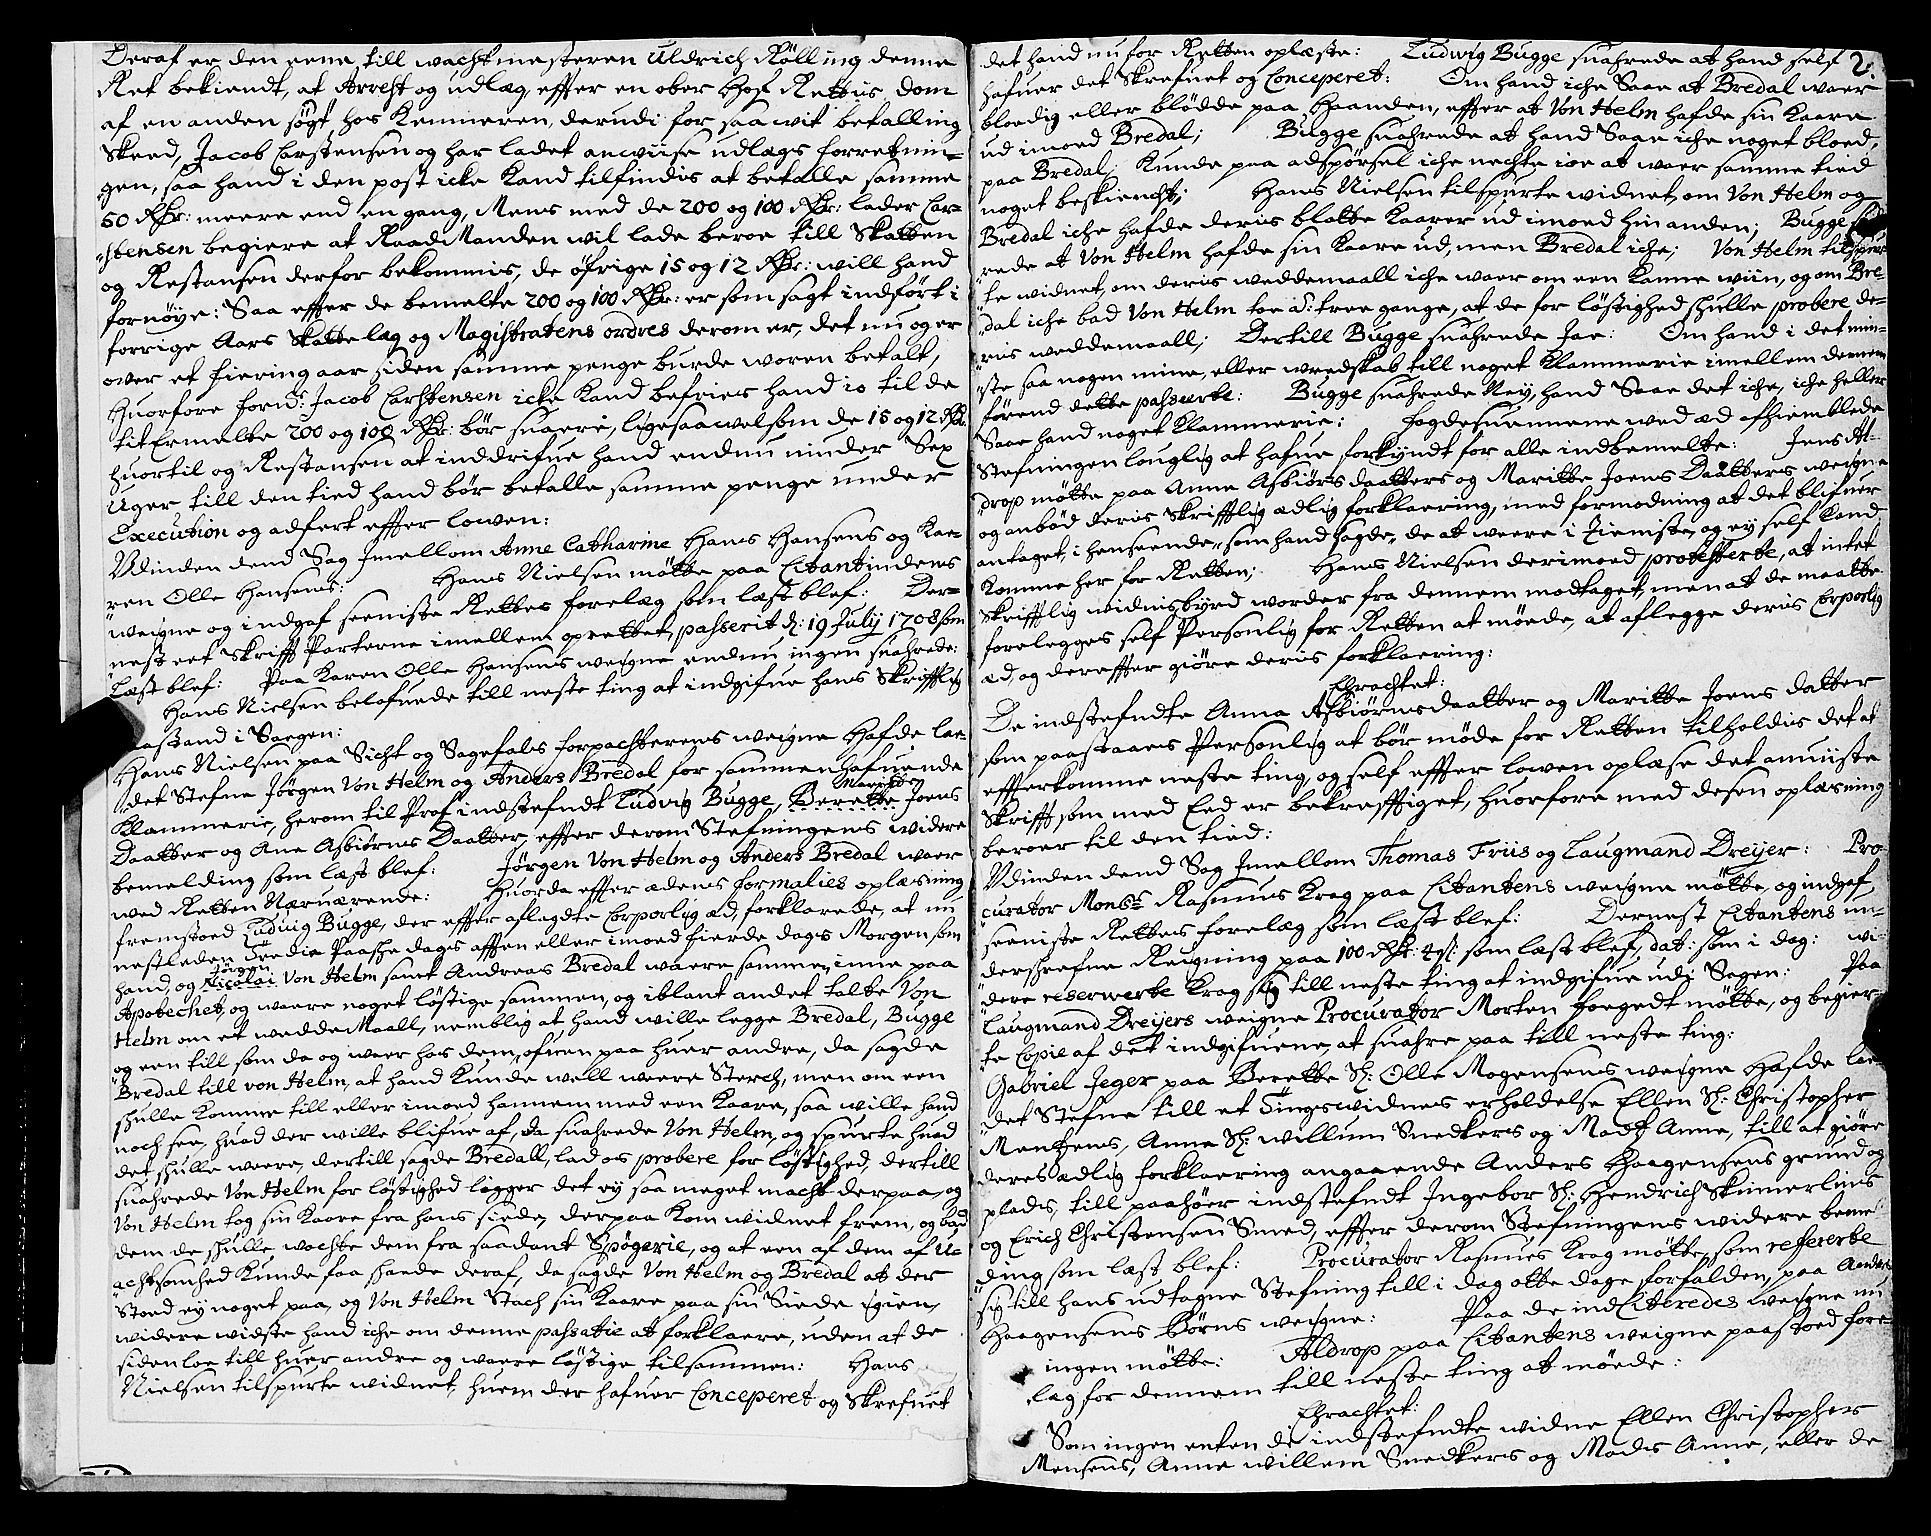 Deraf er den eene till wachtmesteren Uldrich Rölling denne
Ret bekiendt, at Arrest og udlæg effter en ober Hof Rettis dom
af en anden søgt hos Kemneren, derudi for saa wit betalling
skeed, Jacob Carstensen og har ladet anwiise udlægs forretnin-
gen, saa hand i den post icke kand tilfindis at betalle samme
50 Rdr: meere end en gang, Mens med de 200 og 100 Rdr: lader Car-
stensen begiere at RaadManden wil lade beroe till Skatten
og Restansen derfor bekommis, de øfrige 15 og 12 Rdr: will hand
fornøye: Saa effter de bemelte 200 og 100 Rdr: er som sagt indført i
forrige Aars Skattelæg og Magistratens ordres derom er, det nu og er
over et fiering aar siden samme penge burde woren betalt,
Huorfore forns: Jacob Carstensen icke kand befries hand io til de
tit ermelte 200 og 100 Rdr: bør suarre, ligesaawelsom de 15 og 12 Rdr
huortil og Restansen at inddrifue hand endnu niuder Sex
Uger till den tied hand bør betalle samme penge under
Execution og adfert effter lowen:
Udinden dend Sag Imellom Anne Catharine Hans Hansens og Ka-
ren Olle Hansens: Hans Nielsen møtte paa Citantindens
weigne og indgaf seeniste Rettes forelæg som læst blef: Der-
nest eet Skrifft Parterne imellem oprettet, passerit d: 19 July 1708 som
læst blef: Paa Karen Olle Hansens weigne endnu ingen suahrede:
Hans Nielsen belofuede till neste ting at indgifue hans Skrifftlig
paastand i Saegen:
Hans Nielsen paa Sicht og Sagefals forpachterens weigne hafde la-
det Stefne Jørgen Von Helm og Anders Bredal for sammenhafuende
Klammerie, herom til Prof indstefndt Ludvig Bugge, Berette Maritte Joens
Daatter og Ane Asbiørns Daatter, effter derom Stefningens widere
bemelding som læst blef: Jørgen Von Helm og Anders Bredal waer
wed Retten Næruærende: Huorda effter ædens formalies oplæsning
fremstoed Ludvig Bugge, der effter aflagdte Corporlig æd, forklarede, at nu
nestleden Tredie Paaske dags afften eller imoed fierde dags Morgen som
hand, og Nicolai Jørgen Von Helm samt Andreas Bredal waere sammen inne paa
Apotechet, og waere noget løstige sammen, og iblant andet talte Von
Helm om et weddeMaall, nemblig at hand wille legge Bredal, Bugge
og een till som da og waer hos dem, ofuen paa huer andre, da sagde
Bredal till von Helm, at hand kunde well weere Sterch, men om een
skulle komme till eller imoed hannem med een Kaare, saa wille hand
noch see, huad der wille blifue af, da suahrede Von Helm, og spurte huad
det skulle weere, dertill sagde Bredall, lad os probere for løstighed, dertill
suahrede Von Helm for løstighed ligger det ey saa meget macht derpaa, og
Von Helm tog sin Kaare fra hans siede, derpaa kom widnet frem, og bad
dem de skulle wochte dem fra saadant Spøgerie, og at een af dem af U-
achtsomhed kunde faa skaade deraf, da sagde Von Helm og Bredal at der
Stoed ey noget paa, og Von Helm Stach sin Kaare paa sin Siede igien,
widere widste hand iche om denne passatie at forklaere, uden at de
siden loe till huer andre og waere løstige tilsammen: Hans
Nielsen tilspurte widnet, huem der hafuer Conceperet og Skrefuet
2.
det hand nu for Retten oplæste: Ludwig Bugge suahrede at hand self
hafuer det Skrefuet og Conceperet: Om hand iche Saae at Bredal waer
bloedig eller blødde paa Haanden, effter at Von Helm hafde sin Kaare
ud imoed Bredal; Bugge suahrede at hand Saae iche noget bloed,
paa Bredal; Kunde paa adspørsel iche nechte ioe at waer samme tied
noget beskienchet; Hans Nielsen tilspurte widnet, om Von Helm og
Bredal iche hafde deris blotte Kaarer ud imoed hin anden; Bugge sua-
rede at Von Helm hafde sin Kaare ud, men Bredal iche; Von Helm tilspur-
te widnet, om deris weddemaall iche waer om een Kanne wiin, og om Bre-
dal iche bad Von Helm toe à: tree gange, at de for løstighed skulle probere de-
ris weddemaall; Dertill Bugge suahrede Jae: Om hand i det min-
ste saa nogen mine, eller wredskab till noget Klammerie imellem dennem
førend dette passerte: Bugge suahrede Ney, hand Saae det iche, iche heller
Saae hand noget Klammerie: Fogdesuennene wed æd afhiemblede
Stefningen louglig at hafue forkyndt for alle indbemelte: Jens Al-
drop møtte paa Anne Asbiørnsdaatters og Maritte Joens Daatters weigne
og anbød deris Skrifftlig ædlig forklaering, med formodning at det blifuer
antaget, i henseende, som hand sagde, de at weere i tienniste, og ey self kand
komme her for Retten; Hans Nielsen derimoed protesterte, at intet
Skrifftlig widnisbyrd worder fra dennem modtaget, men at de maatte
forelegges self Personlig for Retten at møede, at aflegge deris Corporlig
æd, og dereffter giøre deris forklaering:
Eragtet:
De indstefndte Anna Asbiørnsdaatter og Maritte Joens datter
som paastaaes Personlig at bør møde for Retten tilholdis det at
effterkomme neste ting, og self effter lowen oplæse det anuiiste
Skrifft som med Eed er bekrefftiget, huorfore med desen oplæsning
beroer til den tied:
Udinden dend Sag Imellom Thomas Friis og Laugmand Dreijer: Pro-
curator Monsr: Rasmus Krag paa Citantens weigne møtte, og indgaf
seeniste Rettes forelæg som læst blef: Dernest Citantens un-
derskrefne Reigning paa 100 Rdr: 4 s: som læst blef, dat: som i dag: wi-
dere reserwerte Krag sig till neste ting at indgifue udi Sagen: Paa
Laugmand Dreijers weigne Procurator Morten Foegedt møtte, og begier-
te Copie af det indgifuene, at suahre paa till neste ting:
Gabriel Jeger paa Berette Sl: Olle Mogensens weigne hafde la-
det Stefne till et Tingswidnes erholdelse Ellen Sl: Christopher
Mentzens, Anne Sl: willum Snedkers og Mads Anne, till at giøre
deres ædlig forklaering angaaende Anders Haagensens grund og
plads, till paahøer indstefndt Ingebor Sl: Hendrich Skimerlins
og Erich Christensen Smed, effter derom Stefningens widere bemel-
ding som læst blef: Procurator Rasmus Krag møtte, som refererte
sig till hans udtagne Stefning till i dag otte dage forfalden, paa Anders
Haagensens børns weigne: Paa de indCiteredes weigne nu
ingen møtte: Aldrop paa Citantens weigne paastoed fore-
læg for dennem till neste ting at møede:
Eragtet:
Som ingen enten de indstefndte widne Ellen Christophers
Mensens, Anne willem Snedkers og Mads Anne, eller de